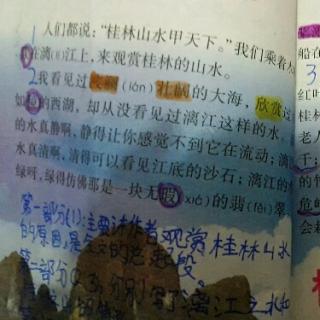 1 人们都说:“桂林山水甲天下。”我们乘着
在漓(lí)江上,来观赏桂林的山水。
2 我看见过波澜(lán)壮阔的大海,欣赏过
如的西湖,却从没看见过漓江这样的水。
的水真静啊,静得让你感觉不到它在流动;漓
水真清啊,清得可以看见江底的沙石;漓江的
绿呀,绿得仿佛那是一块无瑕(xiá)的翡(fěi)翠。
第一部分(1):主要讲作者观赏桂林山水
的原因,是全文的总起段。
第二部分(2、3)分别写了漓江之水和
船在
3
红叶
桂林
老人
干;
的竹
危
会